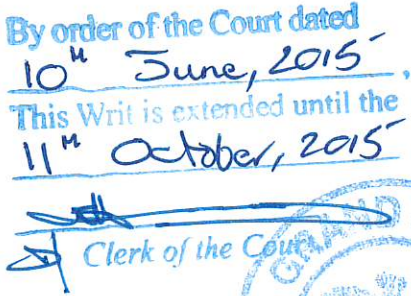 By order of the Court dated
10th June, 2015,
This Writ is extended until the
11th October, 2015
Clerk of the Court
GRAND